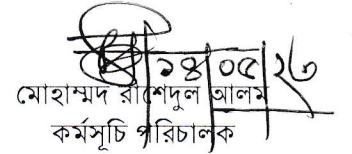 ১৪|০৫|২৩
মোহাম্মদ রাশেদুল আলম
কর্মসূচি পরিচালক